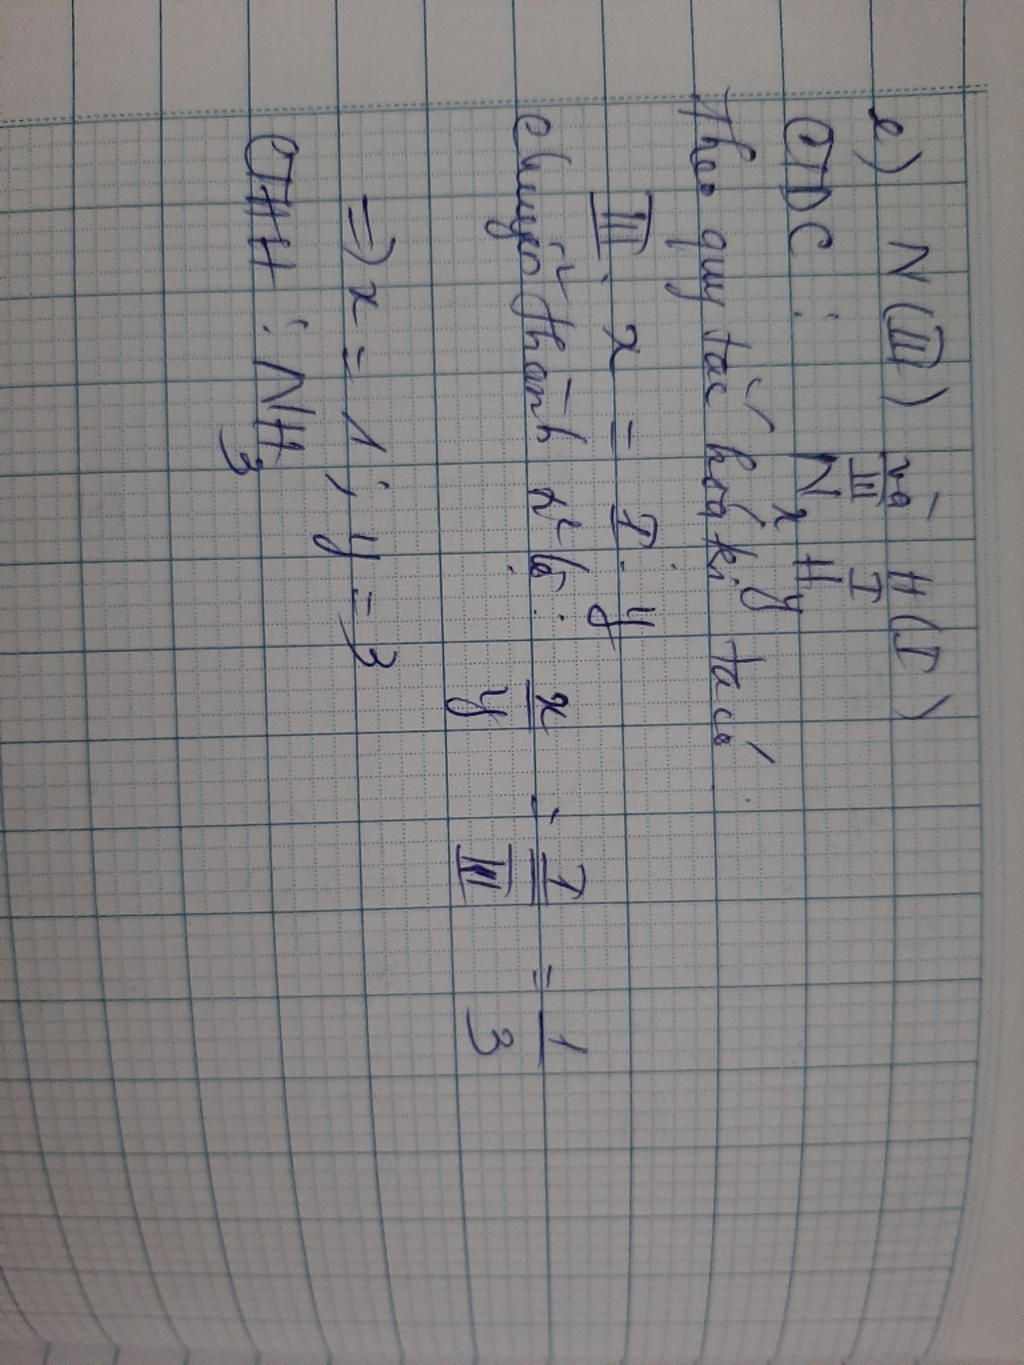 e) N (III) và H (I)
III I
CTDC : NxHy
Theo quy tắc hoá trị ta có :
III . x = I . y
chuyển thành tỉ lệ : x/y = I/III = 1/3
=> x = 1 ; y = 3
CTHH : NH3